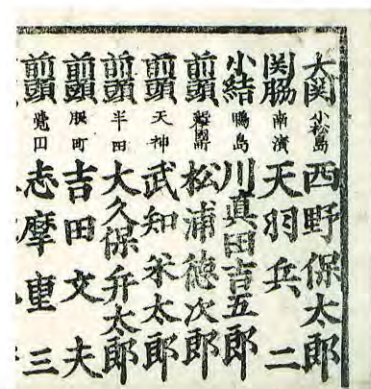 大関 小松島 西野保太郎
関脇 南濱 天羽兵二
小結 鴨島 川真田吉五郎
前頭 松浦徳次郎
前頭 天神 武知米太郎
前頭 半田 大久保弁太郎
前頭 吉田文夫
前頭 覚円 志摩重三